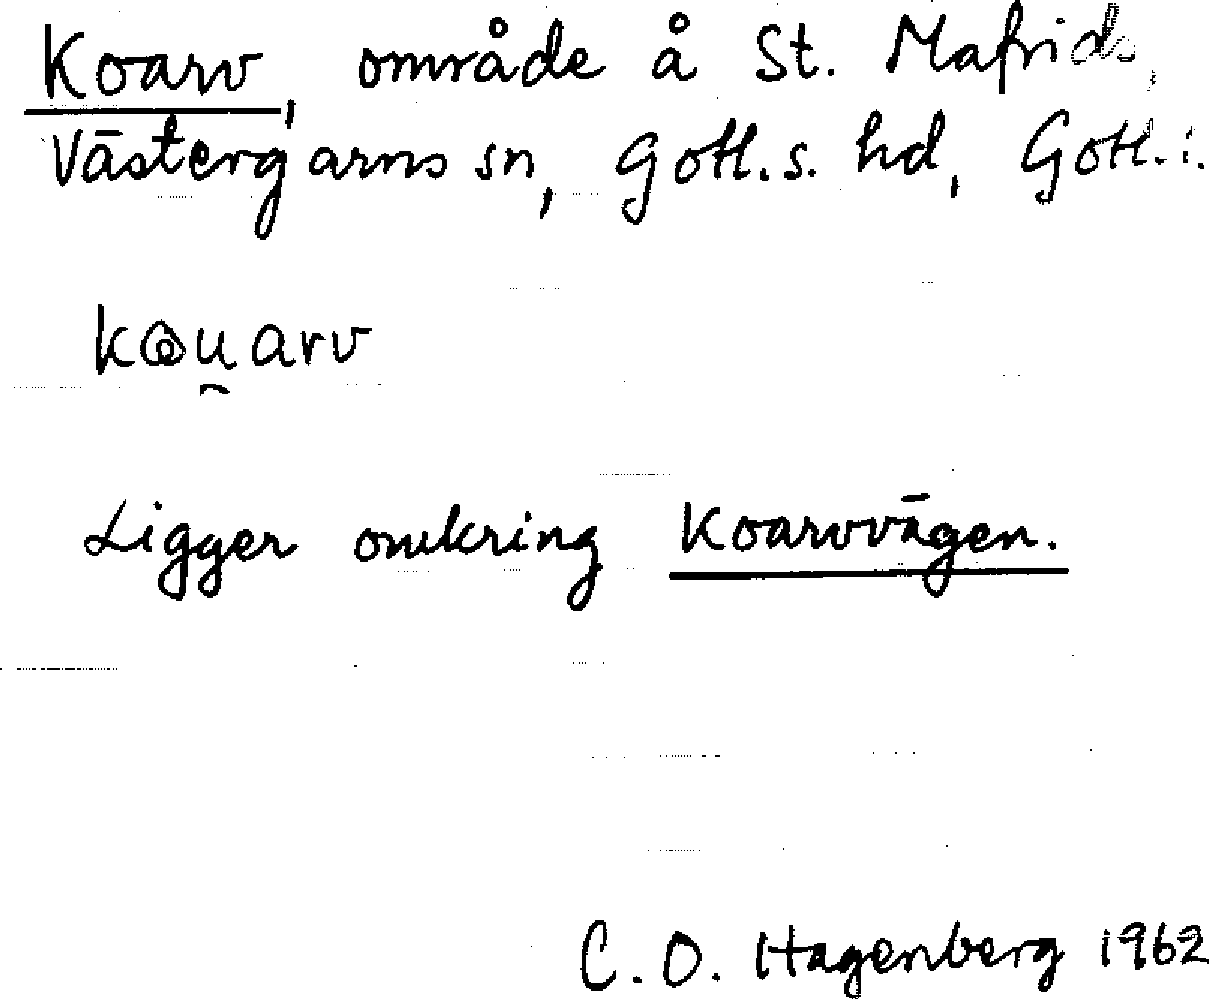 Koarv, område å St. Mafrids,
Västergarns sn, Gotl. s. hd, Gotl. l.
kꙩu̯arv
Ligger omkring Koarvvägen.
C. O. Hagenberg 1962